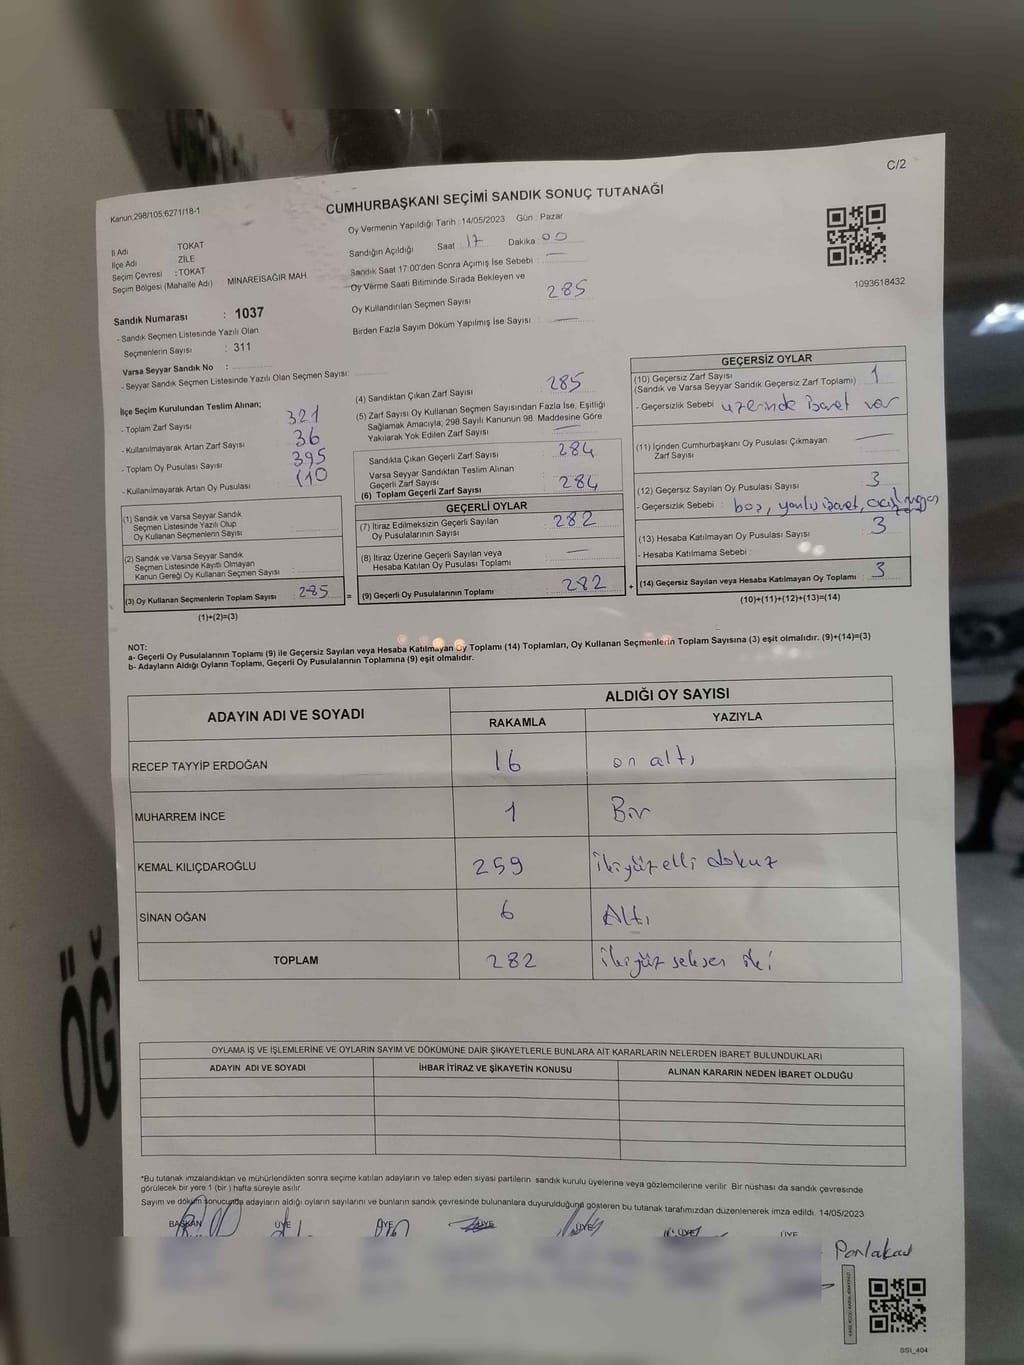 C/2
Kanun,298/105;6271/18-1
CUMHURBAŞKANI SEÇİMİ SANDIK SONUÇ TUTANAĞI
İl Adı TOKAT
İlçe Adı ZİLE
Seçim Çevresi :TOKAT
Seçim Bölgesi (Mahalle Adı) MINAREİSAĞIR MAH.
Oy Vermenin Yapıldığı Tarih : 14/05/2023 Gün : Pazar
Sandığın Açıldığı Saat 17 Dakika 00
Sandık Saat 17:00'den Sonra Açımış İse Sebebi : —
Oy Verme Saati Bitiminde Sırada Bekleyen ve
Oy Kullandırılan Seçmen Sayısı 285
Birden Fazla Sayım Döküm Yapılmış İse Sayısı : —
1093618432
Sandık Numarası : 1037
- Sandık Seçmen Listesinde Yazılı Olan
Seçmenlerin Sayısı : 311
Varsa Seyyar Sandık No :
- Seyyar Sandık Seçmen Listesinde Yazılı Olan Seçmen Sayısı:
İlçe Seçim Kurulundan Teslim Alınan;
- Toplam Zarf Sayısı 321
- Kullanılmayarak Artan Zarf Sayısı 36
- Toplam Oy Pusulası Sayısı 395
- Kullanılmayarak Artan Oy Pusulası 110
(1) Sandık ve Varsa Seyyar Sandık
Seçmen Listesinde Yazılı Olup
Oy Kullanan Seçmenlerin Sayısı
(2) Sandık ve Varsa Seyyar Sandık
Seçmen Listesinde Kayıtlı Olmayan
Kanun Gereği Oy Kullanan Seçmen Sayısı
(3) Oy Kullanan Seçmenlerin Toplam Sayısı 285 =
(1)+(2)=(3)
(4) Sandıktan Çıkan Zarf Sayısı 285
(5) Zarf Sayısı Oy Kullanan Seçmen Sayısından Fazla İse, Eşitliği
Sağlamak Amacıyla; 298 Sayılı Kanunun 98. Maddesine Göre
Yakılarak Yok Edilen Zarf Sayısı —
Sandıkta Çıkan Geçerli Zarf Sayısı 284
Varsa Seyyar Sandıktan Teslim Alınan
Geçerli Zarf Sayısı
(6) Toplam Geçerli Zarf Sayısı 284
GEÇERLİ OYLAR
(7) İtiraz Edilmeksizin Geçerli Sayılan
Oy Pusulalarının Sayısı 282
(8) İtiraz Üzerine Geçerli Sayılan veya
Hesaba Katılan Oy Pusulası Toplamı —
(9) Geçerli Oy Pusulalarının Toplamı 282 +
GEÇERSİZ OYLAR
(10) Geçersiz Zarf Sayısı
(Sandık ve Varsa Seyyar Sandık Geçersiz Zarf Toplamı) 1
- Geçersizlik Sebebi üzerinde ibaret var
(11) İçinden Cumhurbaşkanı Oy Pusulası Çıkmayan
Zarf Sayısı —
(12) Geçersiz Sayılan Oy Pusulası Sayısı 3
- Geçersizlik Sebebi : boş, yanlış ibaret,
(13) Hesaba Katılmayan Oy Pusulası Sayısı 3
- Hesaba Katılmama Sebebi :
(14) Geçersiz Sayılan veya Hesaba Katılmayan Oy Toplamı 3
(10)+(11)+(12)+(13)=(14)
NOT:
a- Geçerli Oy Pusulalarının Toplamı (9) ile Geçersiz Sayılan veya Hesaba Katılmayan Oy Toplamı (14) Toplamları, Oy Kullanan Seçmenlerin Toplam Sayısına (3) eşit olmalıdır. (9)+(14)=(3)
b- Adayların Aldığı Oyların Toplamı, Geçerli Oy Pusulalarının Toplamına (9) eşit olmalıdır.
ADAYIN ADI VE SOYADI ALDIĞI OY SAYISI
RAKAMLA YAZIYLA
RECEP TAYYİP ERDOĞAN 16 on altı
MUHARREM İNCE 1 Bir
KEMAL KILIÇDAROĞLU 259 ikiyüz elli dokuz
SİNAN OĞAN 6 Altı
TOPLAM 282 ikiyüz seksen iki
OYLAMA İŞ VE İŞLEMLERİNE VE OYLARIN SAYIM VE DÖKÜMÜNE DAİR ŞİKAYETLERLE BUNLARA AİT KARARLARIN NELERDEN İBARET BULUNDUKLARI
ADAYIN ADI VE SOYADI İHBAR İTİRAZ VE ŞİKAYETİN KONUSU ALINAN KARARIN NEDEN İBARET OLDUĞU
*Bu tutanak imzalandıktan ve mühürlendikten sonra seçime katılan adayların ve talep eden siyasi partilerin sandık kurulu üyelerine veya gözlemcilerine verilir. Bir nüshası da sandık çevresinde
görülecek bir yere 1 (bir ) hafta süreyle asılır.
Sayım ve döküm sonucunda adayların aldığı oyların sayılarını ve bunların sandık çevresinde bulunanlara duyurulduğunu gösteren bu tutanak tarafımızdan düzenlenerek imza edildi. 14/05/2023
BAŞKAN ÜYE ÜYE ÜYE ÜYE ÜYE ÜYE
SSI_404
ÖĞ